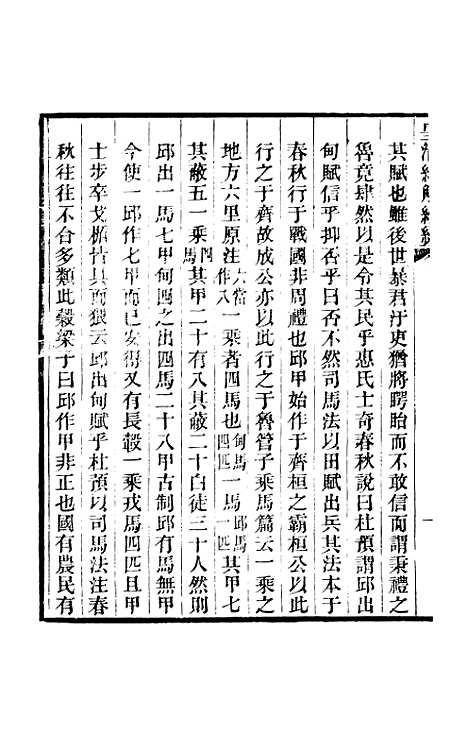 皇清經解續編
其賦也雖後世暴君汙吏猶將瞪眙而不敢信而謂秉禮之
魯竟肆然以是令其民乎惠氏士奇春秋說曰杜預謂邱出
甸賦信乎抑否乎曰否不然司馬法以田賦出兵其法本于
春秋行于戰國非周禮也邱甲始作于齊桓之霸桓公以此
行之于齊故成公亦以此行之于魯管子乘馬篇云一乘之
地方六里原注六當作八一乘者四馬也甸馬四匹一馬邱馬一匹其甲七
其蔽五一乘四馬其甲二十有八其蔽二十白徒三十人然則
邱出一馬七甲甸四之出四馬二十八甲古制邱有馬無甲
今使一邱作七甲而已安得又有長轂一乘戎馬四匹且甲
士步卒戈楯皆具而猥云邱出甸賦乎杜預以司馬法注春
秋往往不合多類此穀梁子曰邱作甲非正也國有農民有